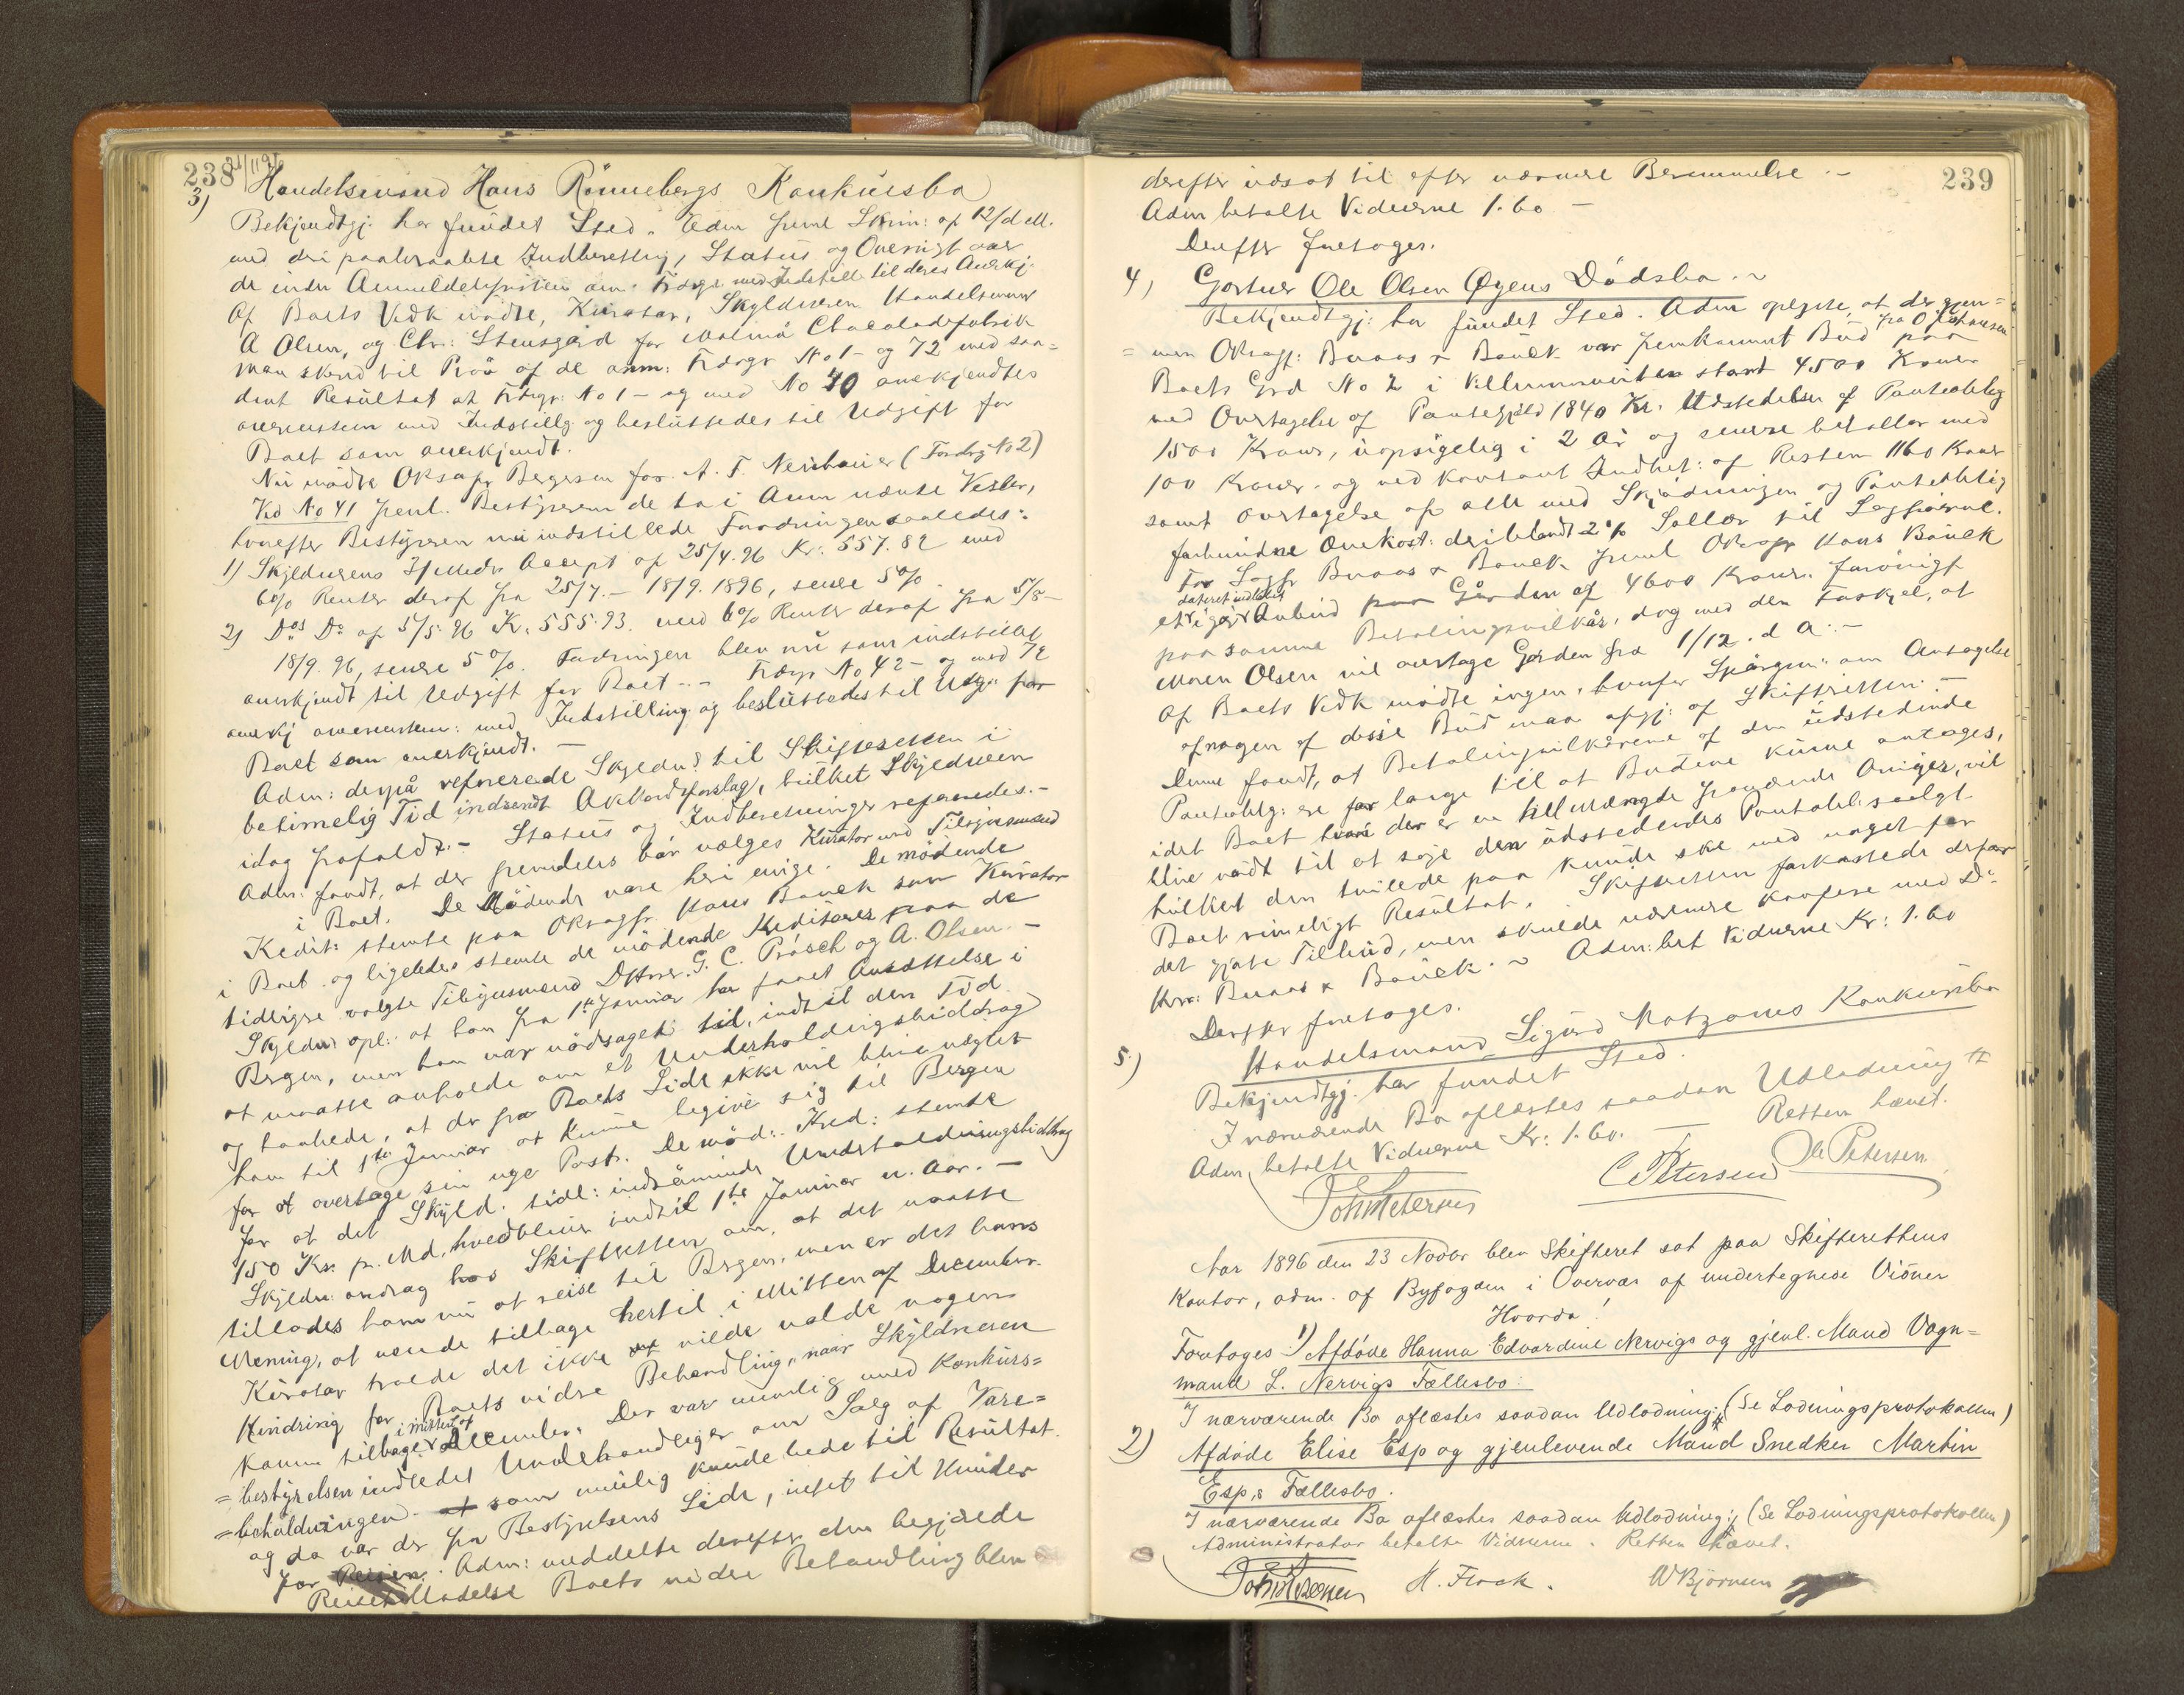 238 21/11 96
3) Handelsmand Hans Rönnebergs Konkursbo
Bekjendtgj. har fundet Sted. Adm freml Skriv: af 12/d M.
med dri paaberaabte Indberetting, Status og Oversigt over
de inden Anmeldelsfristen anm: Fordgr med Indstill til deres Anerkj.
Af Boets Vedk mödte, Kurator, Skyldneren Handelsmand
A Olsen, og Chr: Stensgård for Malmö Chocoladefabrik
Man skred til Pröv af de anm: Fdrgr No 1 - og 72 med saa-
dant Resultat at Fdrgr: No 1 - og med No 40 anerkjendtes
overensstem med Indstillg og besluttedes til Udgift for
Boet som anerkjendt.
Nu mödte OKsagf Bergersen for A. F. Neubauer (Fordrg No 2)
Ved No 41 freml. Bestyreren de to i Anm nævnte Vexler,
hvorefter Bestyreren nu indstillede Fordringen saaledes:
1) Skyldnerens Accept af 25/4. 96 Kr: 557. 82 med
6% Renter deraf fra 25/7. - 18/9. 1896, senere 5%
2) Dos Do af 5/5. 96 Kr. 555. 93. med 6% Renter deraf fra 5/8 -
18/9. 96, senere 5%. Fordringen blev nu som indstillet
anerkjendt til Udgift for Boet. - Fdrgr No 42 - og med 72
anerkj overensstem: med Indstilling og besluttedes til Udg: for
Boet som anerkjendt. -
Adm: derpå refererede Skyldn: til Skifteretten i
betimelig Tid indsendt Akkordforslag, hvilket Skyldneren
idag frafaldt. - Status og Indberetninger refereredes. -
Adm: fandt, at der fremdeles bör vælges Kurator med Tilsynsmænd
i Boet. De Mödende vare heri enige. De mödende
Kredit: stemte paa OKsagfr Hans Bauck som Kurator
i Boet og ligeledes stemte de mödende Kreditorer paa de
tidligere valgte Tilsynsmænd DHrr. G. C. Prösch og A. Olsen. -
Skyldn: opl: at han fra 1ste Januar har faaet Ansættelse i
Bergen, men han var nödsaget til, indtil den Tid
at maatte anholde om et Underholdningsbiddrag
og haabede, at der fra Boets Side ikke vil blive nægtet
ham til 1ste Januar at kunne begive sig til Bergen
for at overtage sin nye Post. De möd: Kred: stemte
for at det Skyld. tidl: indrömmede Underholdningsbiddrag
150 Kr. pr. Md. vedbliver indtil 1ste Januar n. Aar. -
Skyldn: andrag hos Skifteretten om, at det maatte
tillades ham nu at reise til Bergen, men er det hans
Mening, at vende tilbage hertil i Mitten af December.
Kurator troede det ikke vilde volde nogen
Hindring for Boets videre Behandling, naar Skyldneren
kom tilbage i Mitten af December. Der var nemlig med Konkurs=
=bestyrelsen indledet Underhandlinger om Salg af Vare=
=beholdningen. som mulig kunde lede til Resultat.
og da var der fra Bestyrelsens Side, intet til Hinder
for Reisen. Adm: meddelte derefter den begjærede
Reisetilladelse Boets videre Behandling blev
239
derefter udsat til efter nærmere Berammelse. -
Adm betalte Vidnerne 1. 60 -
Derefter foretoges.
4) Gartner Ole Olsen Øyens Dödsbo. ~
Bekjendtgj: har fundet Sted. Adm oplyste, at der gjen=
=nem OKsagf: Buaas & Bauck var fremkommet Bud fra O Johansen paa
Boets Grd No 2 i stort 4500 Kroner
med Overtagelse af Pantegjæld 1840 Kr. Udstedelse af Panteobliig
1500 Kroner, uopsigelig i 2 år og senere betalbar med
100 Kroner. og ved kontant Indbet: af Resten 1160 Kroner
samt overtagelse af alle med Skjødningen og Panteoblig
forbundne Omkost: deriblandt 2% Sallær til Sagförerne.
For Sagf Buaas & Bauck freml OKsagfr Hans Bauck
et igår dateret Anbud Gården af 4600 Kroner. forövrigt
paa samme Betalingsvilkår, dog med den Forskjel, at
Maren Olsen vil overtage Gården fra 1/12. d A. -
Af Boets Vedk mödte ingen, hvorfor Spörgsm: om Antagelse
af nogen af disse Bud maa afgj: af Skifteretten. -
Denne fandt, at Betalingsvilkårene af den udstedende
Panteoblig: ere for lange til at Budene kunne antages,
idet Boet hvori der er en hel Mængde fraværende Arvinger, vil
blive nödt til at søge den udstedendes Panteobl. solgt
hvilket den tvilede paa kunde ske med noget for
Boet rimeligt Resultat. Skifteretten forkastede derfor
det gjorte Tilbud, men skulde nærmere konferere med D.
Hrr: Buaas & Bauck. ~ Adm: bet Vidnerne Kr: 1. 60
Derefter foretoges.
5) Handelsmand Sigurd Motzaus Konkursbo
Bekjendtgj. har fundet Sted.
I nærværende Bo oplæstes saadan Udlodning
Adm betalte Vidnerne Kr: 1. 60. - Retten hævet.
C Petersen Ole Petersen
Aar 1896 den 23 Novbr blev Skifteret sat paa Skifterettens
Kontor, adm. af Byfogden i Overvær af undertegnede Vidner
Hvorda!
Foretoges 1) Afdöde Hanna Edvardine Nervigs og gjenl. Mand Vogn=
mand L. Nervigs Fællesbo:
I nærværende Bo oplæstes saadan Udlodning: (Se Lodningsprotokollen)
2) Afdöde Elise Esp og gjenlevende Mand Snedker Martin
Esp,s Fællesbo.
I nærværende Bo oplæstes saadan Udlodning: (Se Lodningsprotokollen)
Administrator betalte Vidnerne. Retten hævet.
H. Flock. W Björnsen